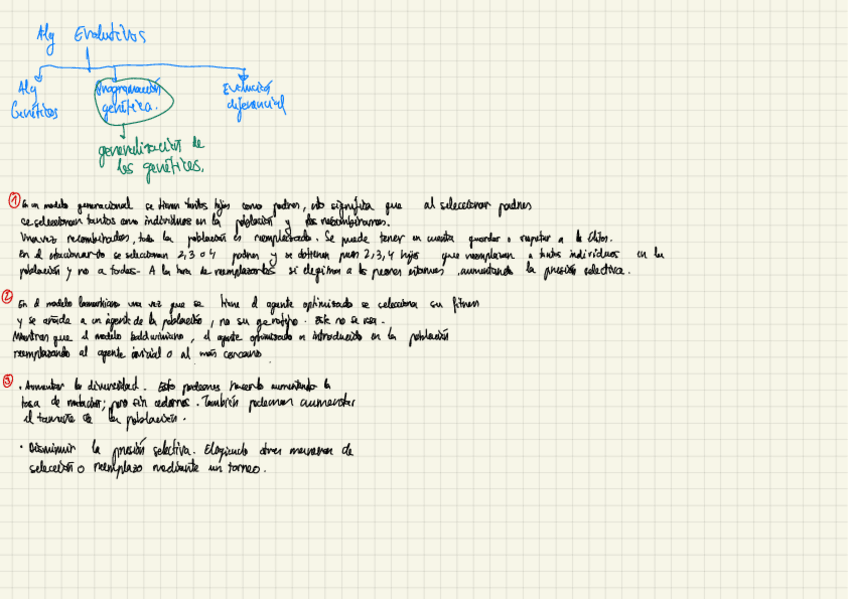 Alg Evolutivos
Alg
Genéticos
Programación
genética.
Evolución
diferencial
generalización de
los genéticos.
① En un modelo generacional se tienen tantos hijos como padres, esto significa que al seleccionar padres
se seleccionan tantos como individuos en la población y los recombinamos.
Una vez recombinados, toda la población es reemplazada. Se puede tener en cuenta guardar o respetar a la élites.
En el estacionario se seleccionan 2, 3 o 4 padres y se obtienen pues 2, 3, 4 hijos que reemplazan a tantos individuos en la
población y no a todos. A la hora de reemplazarlos si elegimos a los peores estamos aumentando la presión selectiva.
② En el modelo lamarkiano una vez que se tiene el agente optimizado se selecciona su fitness
y se añade a un agente de la población, no su genotipo. Este no se usa.
Mientras que el modelo baldwiniano, el agente optimizado es introducido en la población
reemplazando al agente inicial o al más cercano.
③ · Aumentar la diversidad. Esto podemos hacerlo aumentando la
tasa de mutación; pero sin . También podemos aumentar
el tamaño de la población.
· Disminuir la presión selectiva. Eligiendo otras maneras de
selección o reemplazo mediante un torneo.